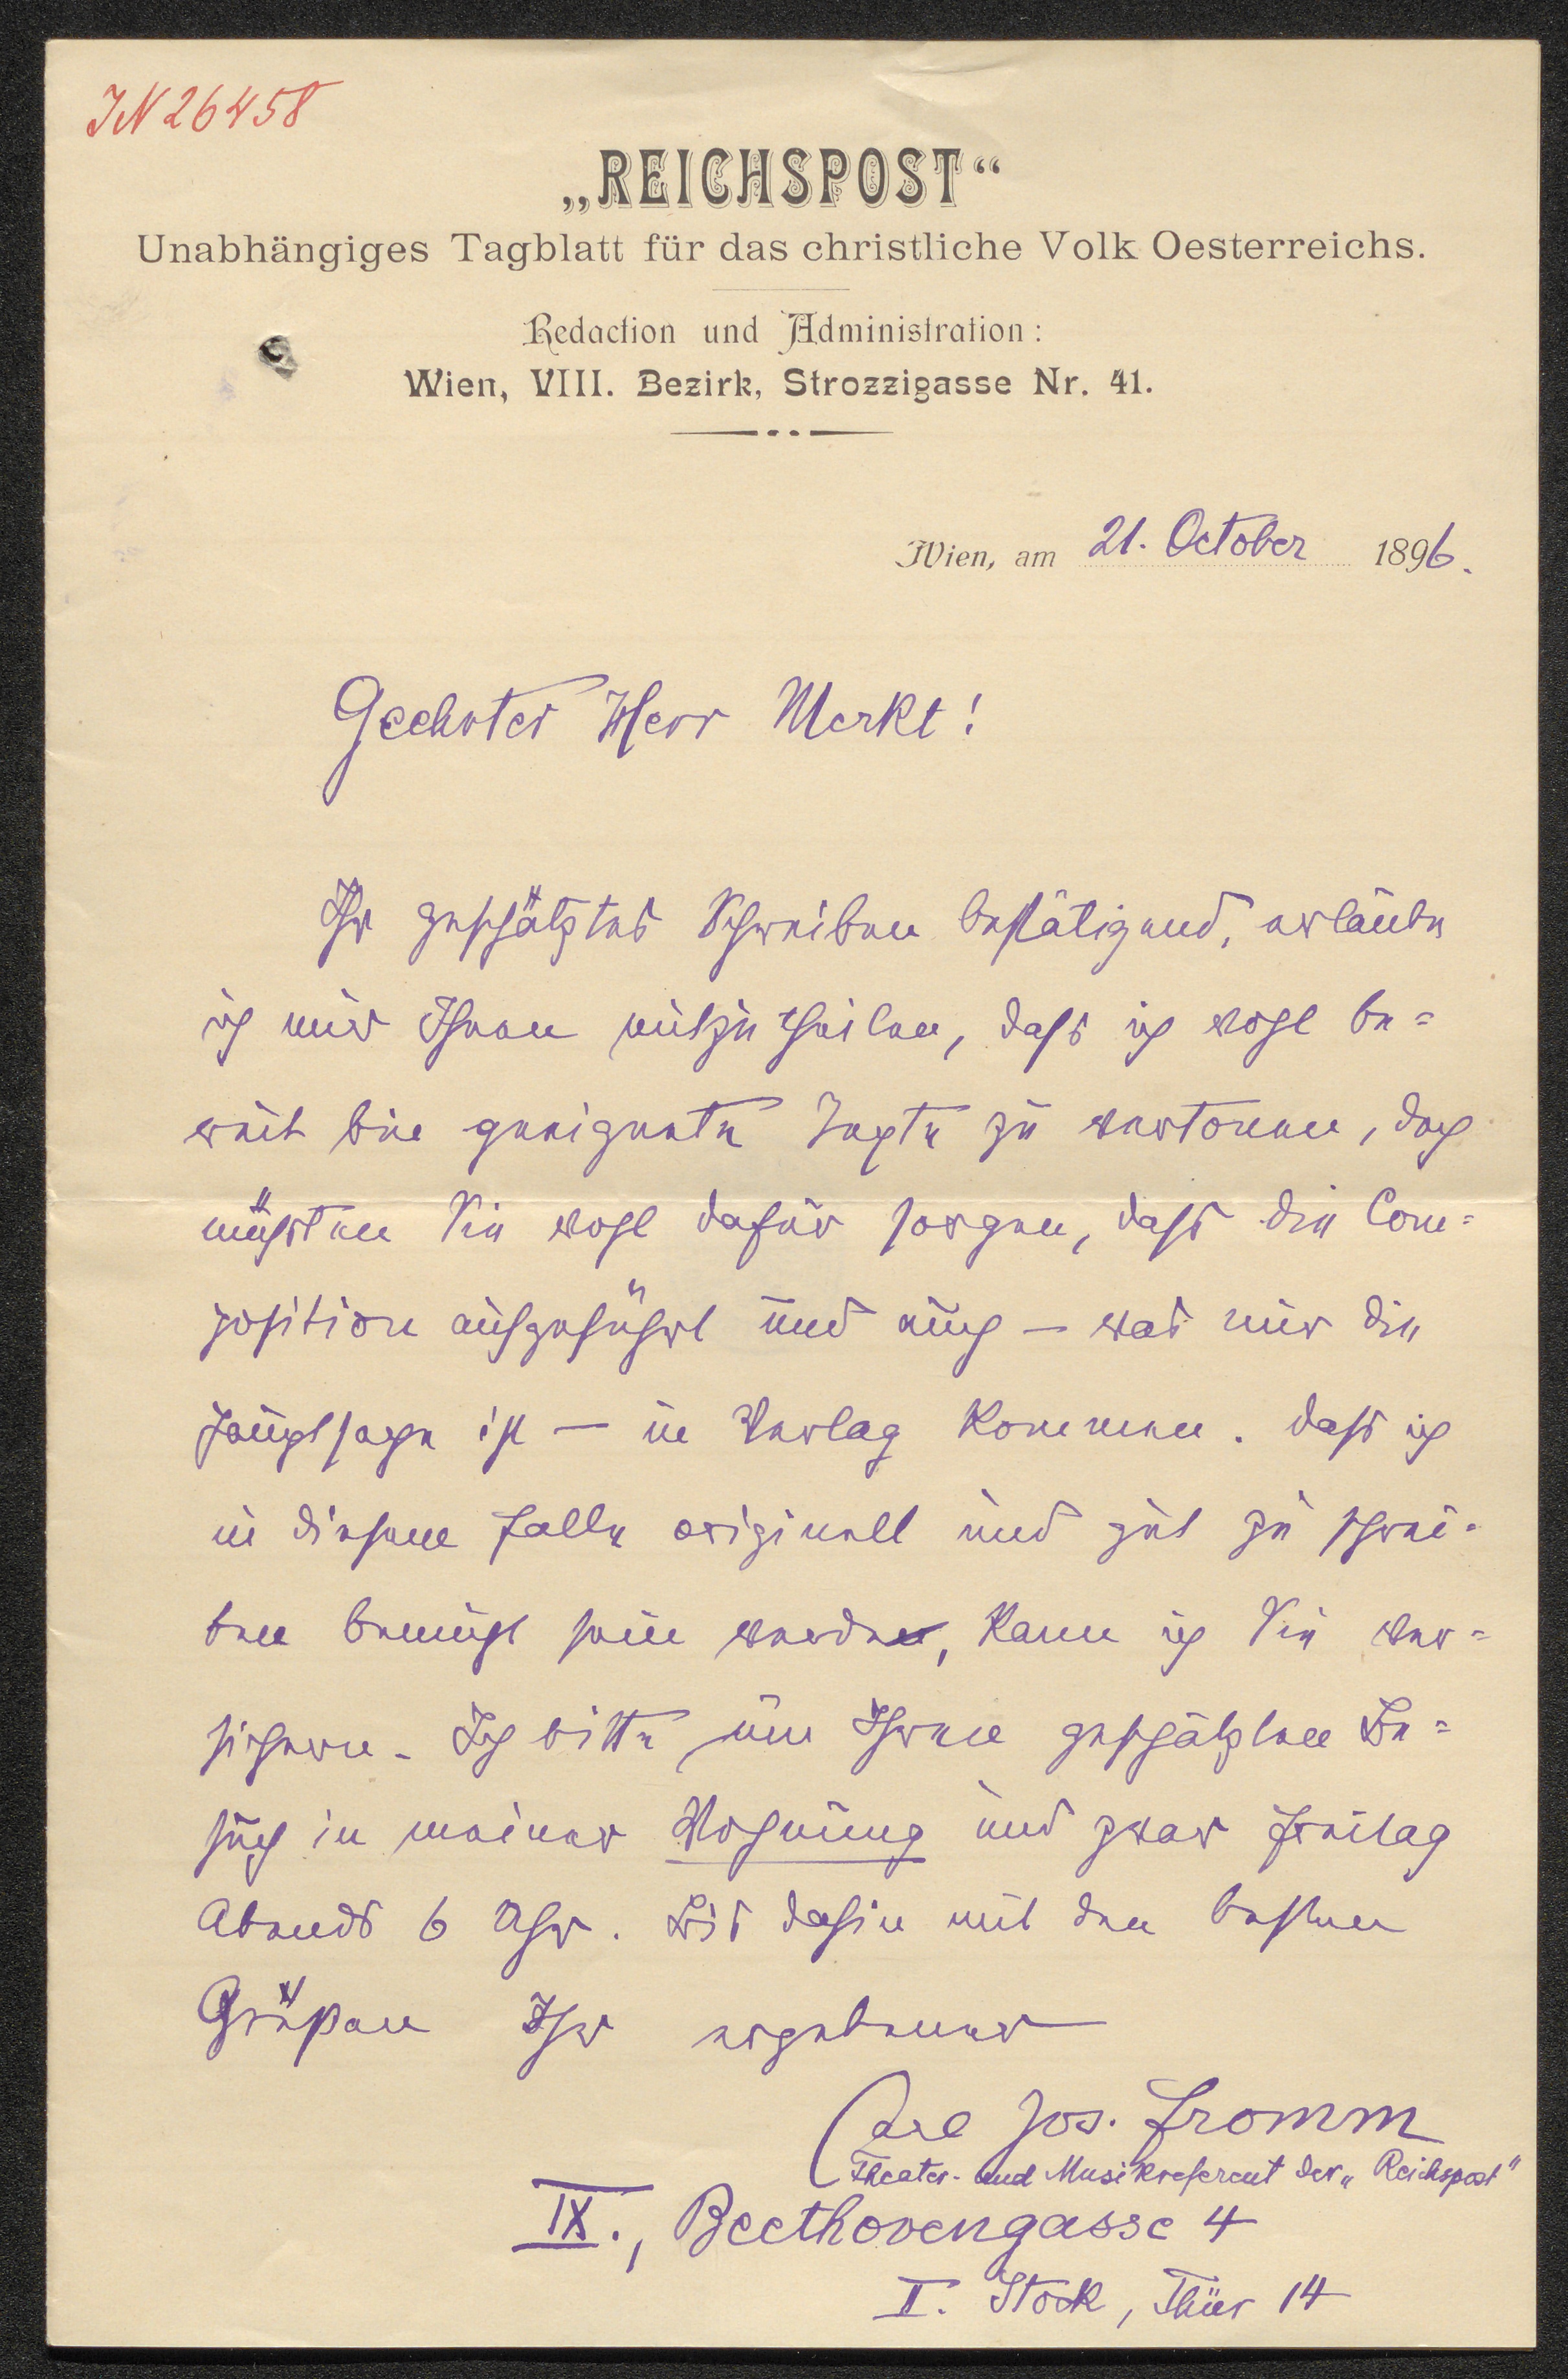 IN 26458
„REICHSPOST“
Unabhängiges Tagblatt für das christliche Volk Oesterreichs.
Redaction und Administration:
Wien, VIII. Bezirk, Strozzigasse Nr. 41.
Wien, am 21. October 1896.
Geehrter Herr Merkt!
Ihr geschätztes Schreiben bestätigend, erlaube
ich mir Ihnen mitzutheilen, dass ich wohl be-
reit bin geeignete Texte zu vertonen, doch
müssten Sie wohl dafür sorgen, dass die Com-
position aufgeführt und auch — was mir die
Hauptsache ist — in Verlag kommen. Dass ich
in diesem Falle originell und gut zu schrei-
ben bemüht sein werde, kann ich Sie ver-
sichern. Ich bitte um Ihren geschätzten Be-
such in meiner Wohnung und zwar Freitag
Abends 6 Uhr. Bis dahin mit den besten
Grüßen Ihr ergebener
Carl Jos. Fromm
Theater- und Musikreferent der „Reichspost“
IX., Beethovengasse 4
I. Stock, Thür 14